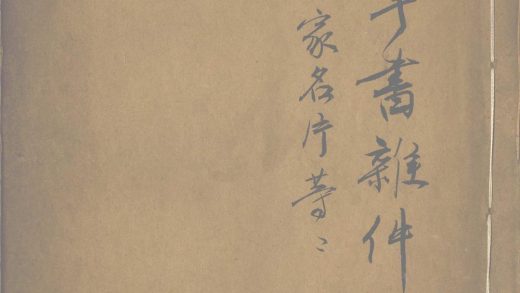 書雜件
家名片等〻